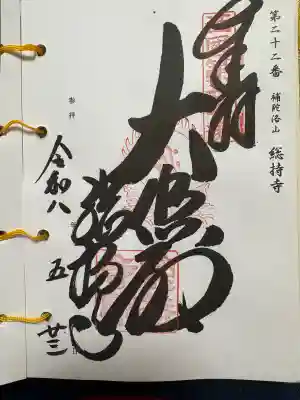 第二十二番 補陀洛山 総持寺
奉拝
大悲殿
総持寺
令和八
五
廿三